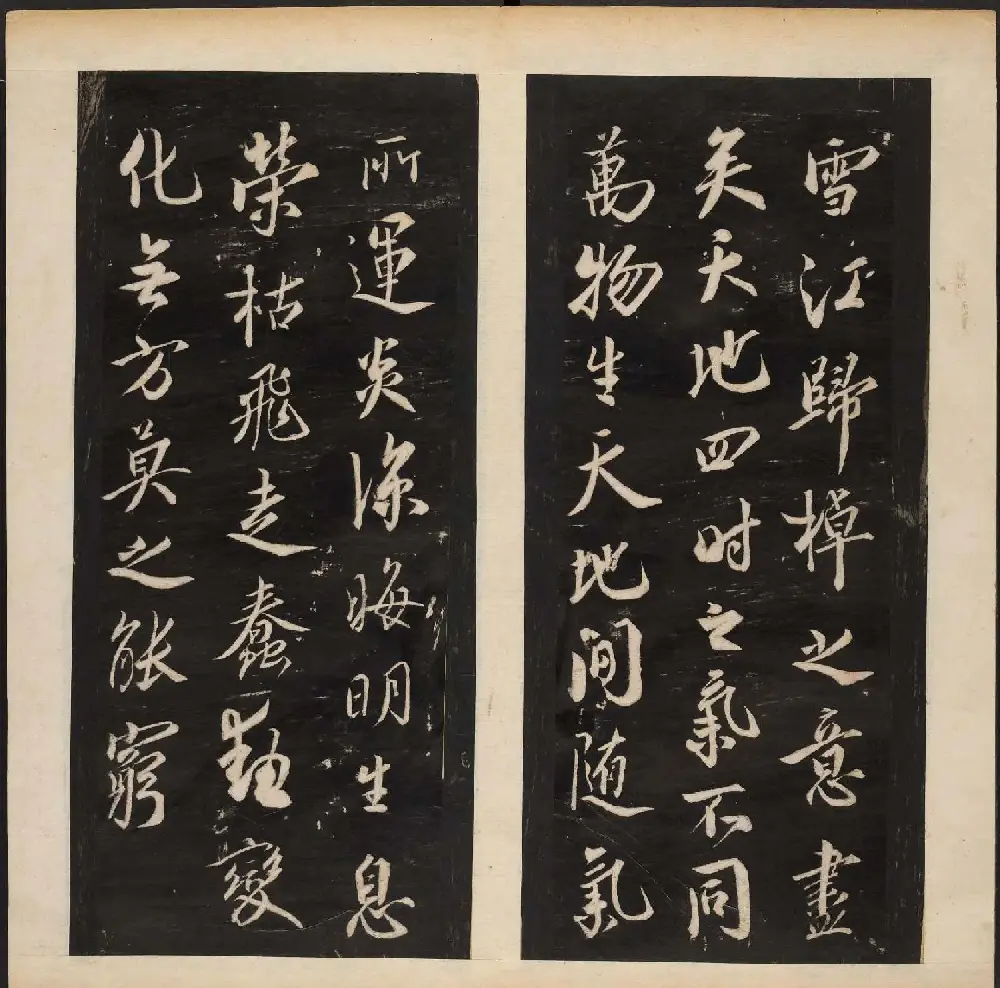 雪江歸棹之意盡
矣天地四时之氣不同
萬物生天地間随氣
所運炎涼晦明生息
榮枯飛走蠢動變
化無方莫之能窮